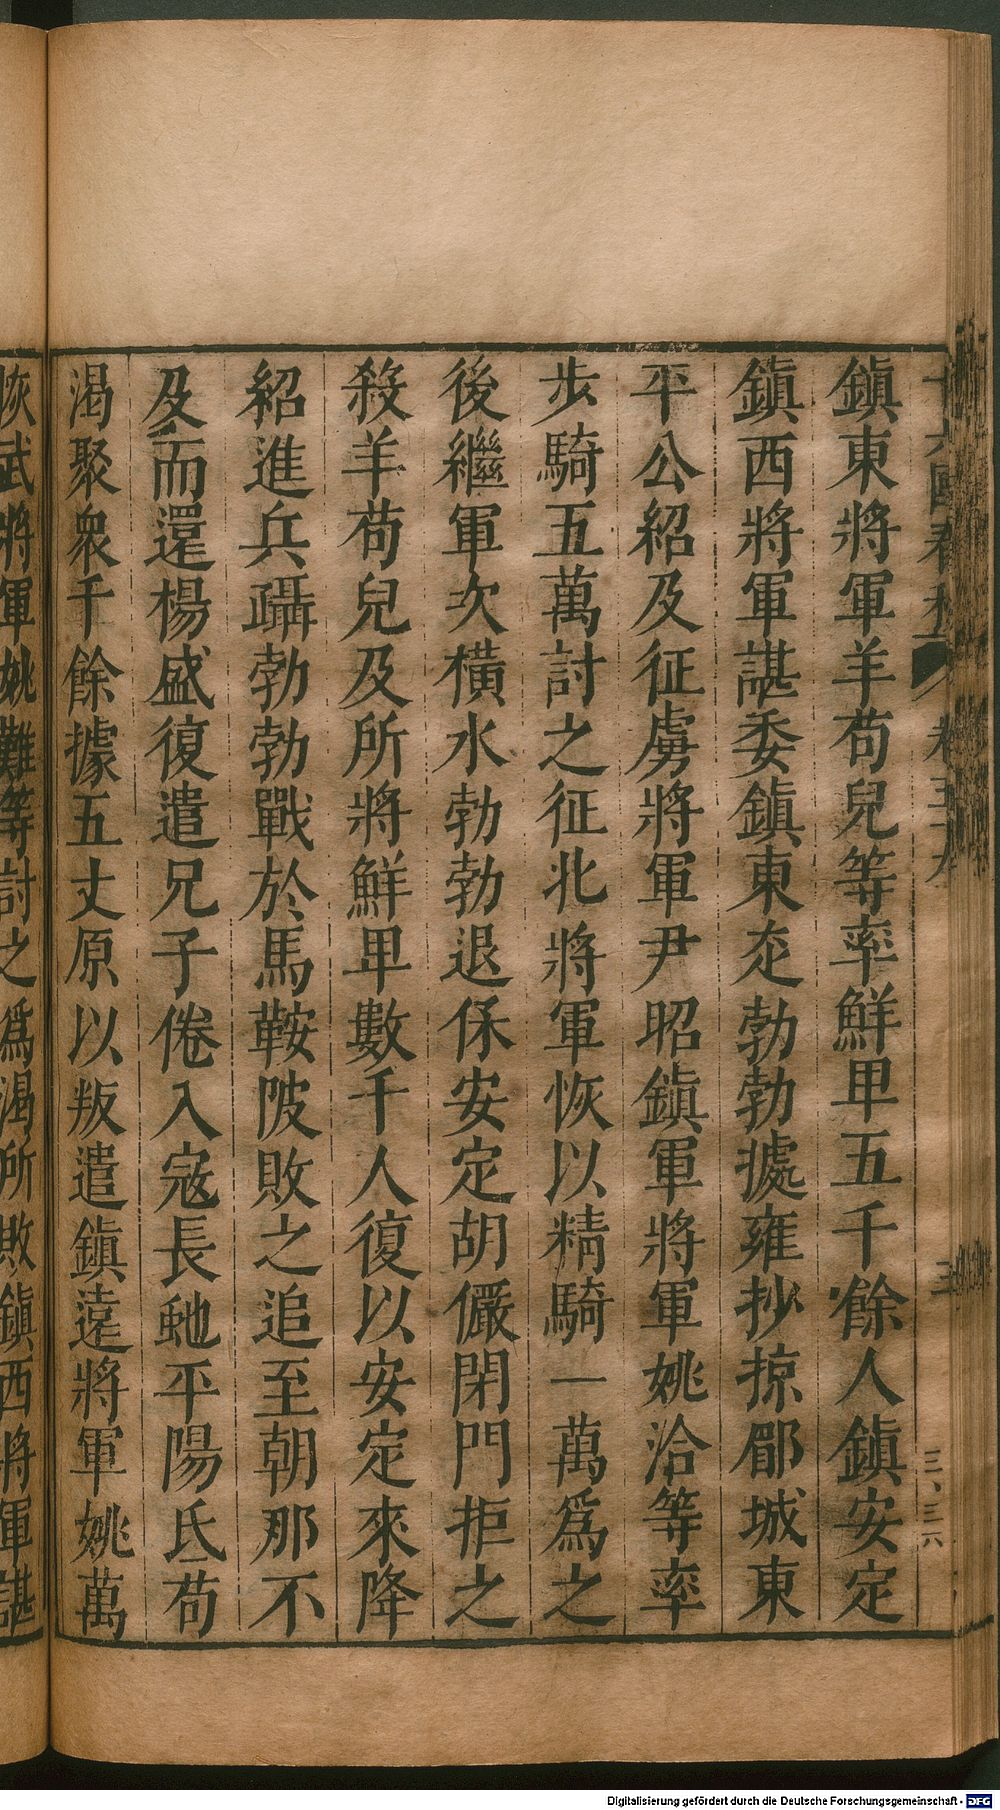 鎮東將軍羊苟兒等率鮮卑五千餘人鎮安定
鎮西將軍諶委鎮東走勃勃據雍抄掠郿城東
平公紹及征虜將軍尹昭鎮軍將軍姚洽等率
步騎五萬討之征北將軍恢以精騎一萬爲之
後繼軍次橫水勃勃退保安定胡儼閉門拒之
殺羊苟兒及所將鮮卑數千人復以安定來降
紹進兵躡勃勃戰於馬鞍陂敗之追至朝那不
及而還楊盛復遣兄子倦入寇長虵平陽氐苟
渴聚衆千餘據五丈原以叛遣鎮遠將軍姚萬
恢武將軍姚難等討之爲渴所敗鎮西將軍諶
三、三六
Digitalisierung gefördert durch die Deutsche Forschungsgemeinschaft - DFG